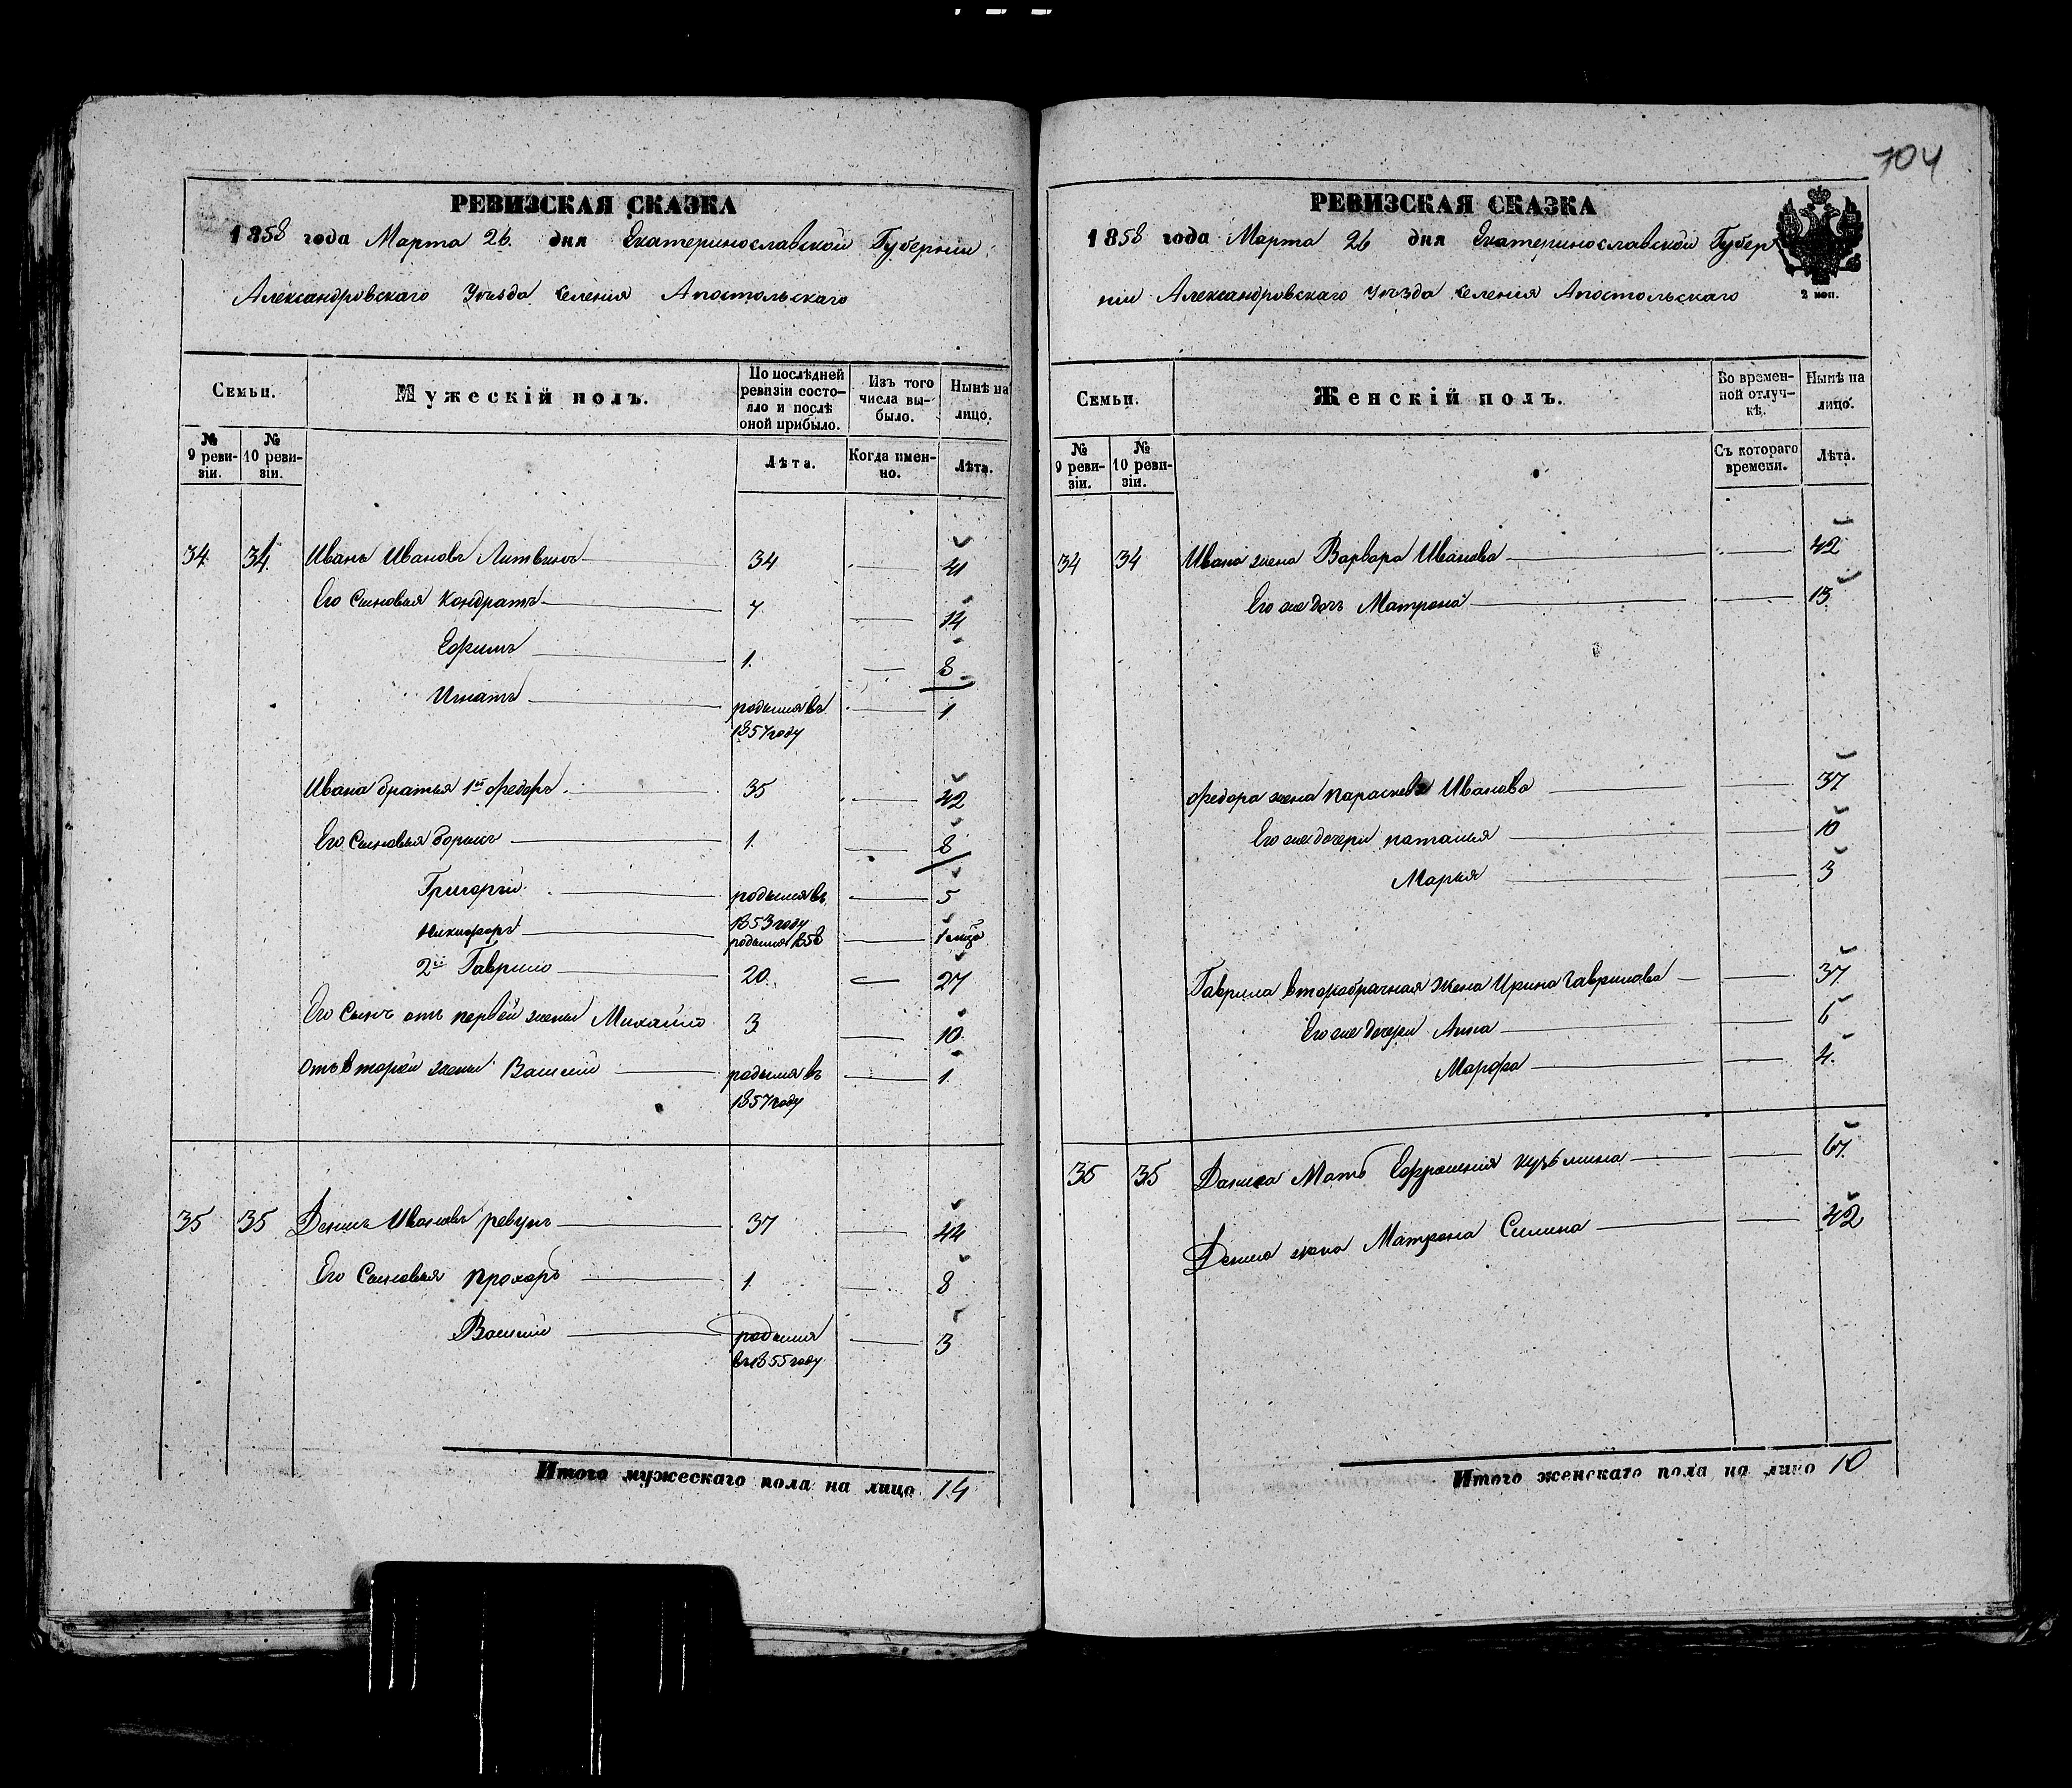 704
РЕВИЗСКАЯ СКАЗКА
1858 года Марта 26. дня Екатеринославской Губерніи
Александровскаго Уѣзда селенія Апостольскаго
Семьи.
Мужескій полъ.
По послѣдней ревизіи состояло и послѣ оной прибыло.
Изъ того числа выбыло.
Нынѣ на лицо.
№ 9 ревизіи.
№ 10 ревизіи.
Лѣта.
Когда именно.
Лѣта.
34 34 Иванъ Ивановъ Литвинъ 34 41
Его сыновья Кондратъ 7 14
Ефимъ 1. 8
Игнатъ родился въ 1
1857 году
Ивана братья 1й Федоръ 35 42
Его сыновья Борисъ 1. 8
Григорій родился въ 5
1853 году
Никифоръ родился 1858 1 мѣс
2й Гаврило 20. 27
Его сынъ отъ первой жены Михайло 3 10
Отъ второй жены Василій родился въ 1
1857 году
35 35 Денисъ Ивановъ Ревунъ 37 44
Его сыновья Прохоръ 1 8
Василій родился 3
въ 1855 году
Итого мужескаго пола на лицо 14
РЕВИЗСКАЯ СКАЗКА
1858 года Марта 26 дня Екатеринославской Губер
ніи Александровскаго Уѣзда селенія Апостольскаго
2 коп.
Семьи.
Женскій полъ.
Во временной отлучкѣ.
Нынѣ на лицо.
№ 9 ревизіи.
№ 10 ревизіи.
Съ котораго времени.
Лѣта.
34 34 Ивана жена Варвара Иванова 42
Его же дочь Матрона 13
Федора жена Параскева Иванова 37
Его же дочери Наталья 10
Марья 3
Гаврила второбрачная жена Ирина Гаврилова 37
Его же дочери Анна 6
Марфа 4.
35 35 Дениса Мать Ефросинія Кузьмина 67
Дениса жена Матрона Силина 42
Итого женскаго пола на лицо 10